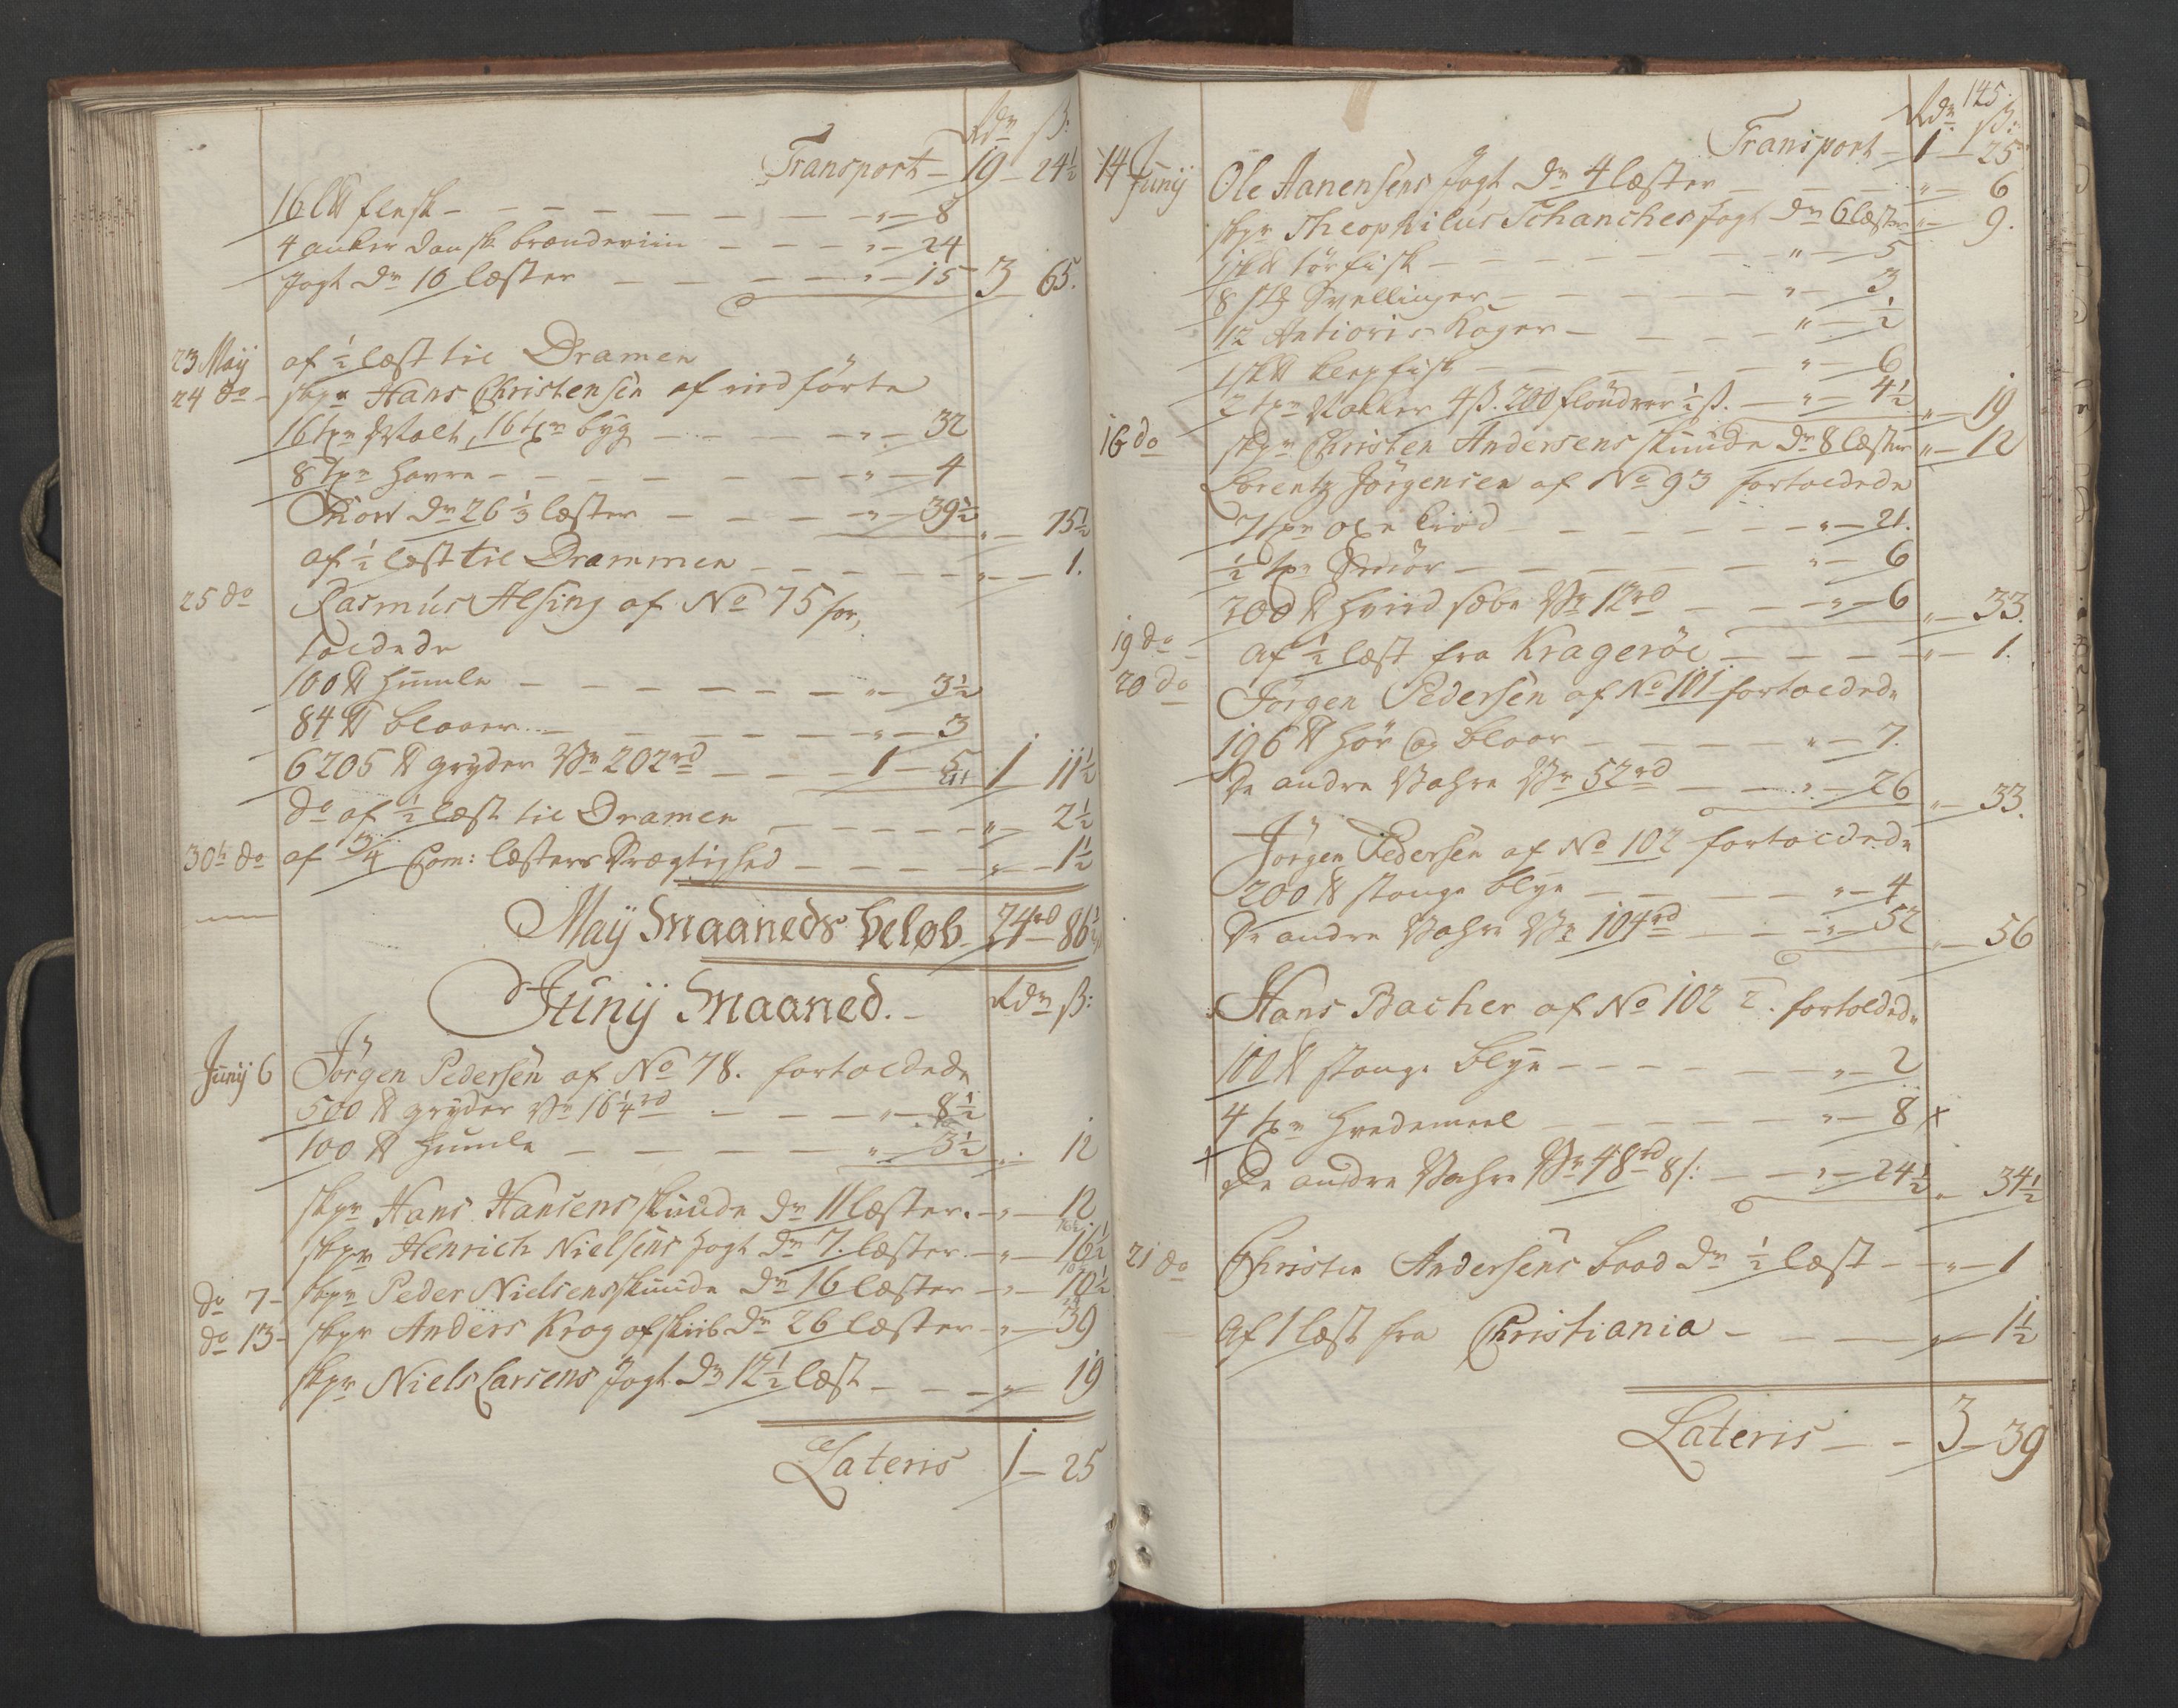 Rdr ß:
Transport – 19 – 24½
16 L℔ flesk – „ – 8
4 anker dansk brændeviin – „ – 24
Jagt dr 10 læster – „ – 15 3 65.
23 Maÿ af ½ læst til Dramen
24 do – skpr Hans Christensen af indførte
16 tr Malt, 16 tr byg – „ – 32
8 tr havre – „ – 4
dr 26⅓ læster – „ – 39½ „ – 75½
af ½ læst til Drammen – „ – 1.
25 do Rasmus Alsing af No 75 for„
toldede
100 ℔ humle – „ – 3½
84 ℔ blaaer – „ – 3
6205 ℔ gryder Vr 202 rd – 1 – 5 1 11½
do af ½ læst til Dramen „ 2½
30te do af 3/4 Com: læsters Drægtighed – „ – 1½
Maÿ Maaneds beløb 74 rd 86½
Junÿ Maaned. – Rdr ß:
Junÿ 6 Jörgen Pedersen af No 78. fortoldede
500 ℔ gryder Vr 16¼ rd – „ – 8½
100 ℔ humle – „ 3½ „ 12
skpr Hans Hansens skuude dr 11 læster. – „ – 12
skpr Henrich Nielsens Jagt dr 7. læster – „ – 16½
do 7 – skpr Peder Nielsens skuude dr 16 læster – „ – 10½
do 13 – skpr Anders Krog af skib dr 26 læster – „ – 39
skpr Niels Larsens Jagt dr 12½ læst – „ – 19
Lateris 1 – 25
145.
Rdr ß:
Transport – 1 – 25
14 Junÿ Ole Aanensens Jagt dr 4 læster – „ – 6
skpr Theophilus Schanches Jagt dr 6 læster „ – 9.
1 sk℔ tör fisk – „ – 5
8 stk Svellinger – „ – 3
12 Kager – „ – ½
1 sk℔ klepfisk – „ – 6
2 tr 4 ß. 200 flöndrer ½ ß. – „ – 4½ „ – 19
16 do skpr Christen Andersens skuude dr 8 læster „ – 12
Lorentz Jörgensen af No 93 fortoldede
7 tr oxe kiöd – „ – 21.
½ tr Smör – „ – 6
200 ℔ hviid sæbe Vr 12 rd – „ – 6 „ – 33.
19 do – af ½ læst fra Krageröe – „ – 1.
20 do Jörgen Pedersen af No 101 fortoldede
196 ℔ hör og blaar – „ – 7.
De andre Vahre Vr 52 rd – „ – 26 „ – 33.
Jörgen Pedersen af No 102 fortoldede
200 ℔ stange blye – „ – 4
De andre Vahre Vr 104 rd – „ – 52 „ – 56
Hans Bacher af No 102 2. fortoldede
100 ℔ stange blye – „ – 2
4 tr hvedemeel – „ – 8 x
De andre Vahre Vr 48 rd 8 ß: – „ – 24½ „ 34½
21 do Christen Andersens baad dr ½ læst – „ – 1
Af 1 læst fra Christiania – „ – 1½
Lateris – – 3 – 39